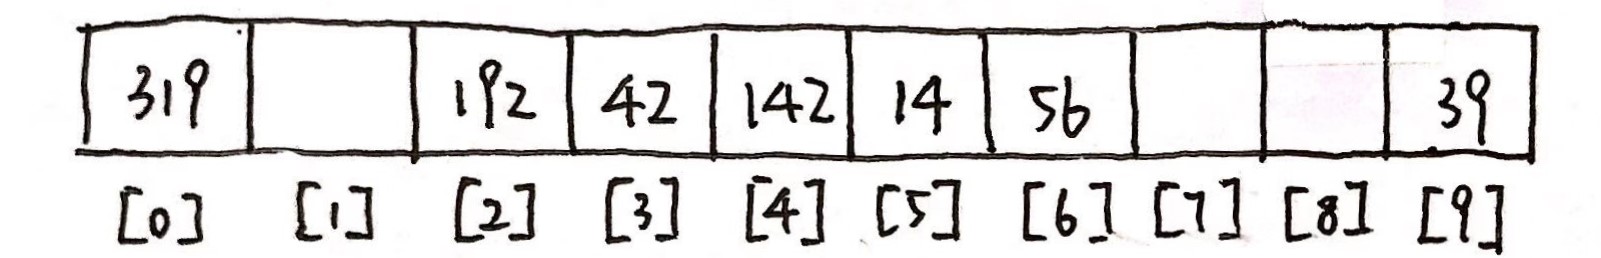 319 192 42 142 14 56 39
[0] [1] [2] [3] [4] [5] [6] [7] [8] [9]